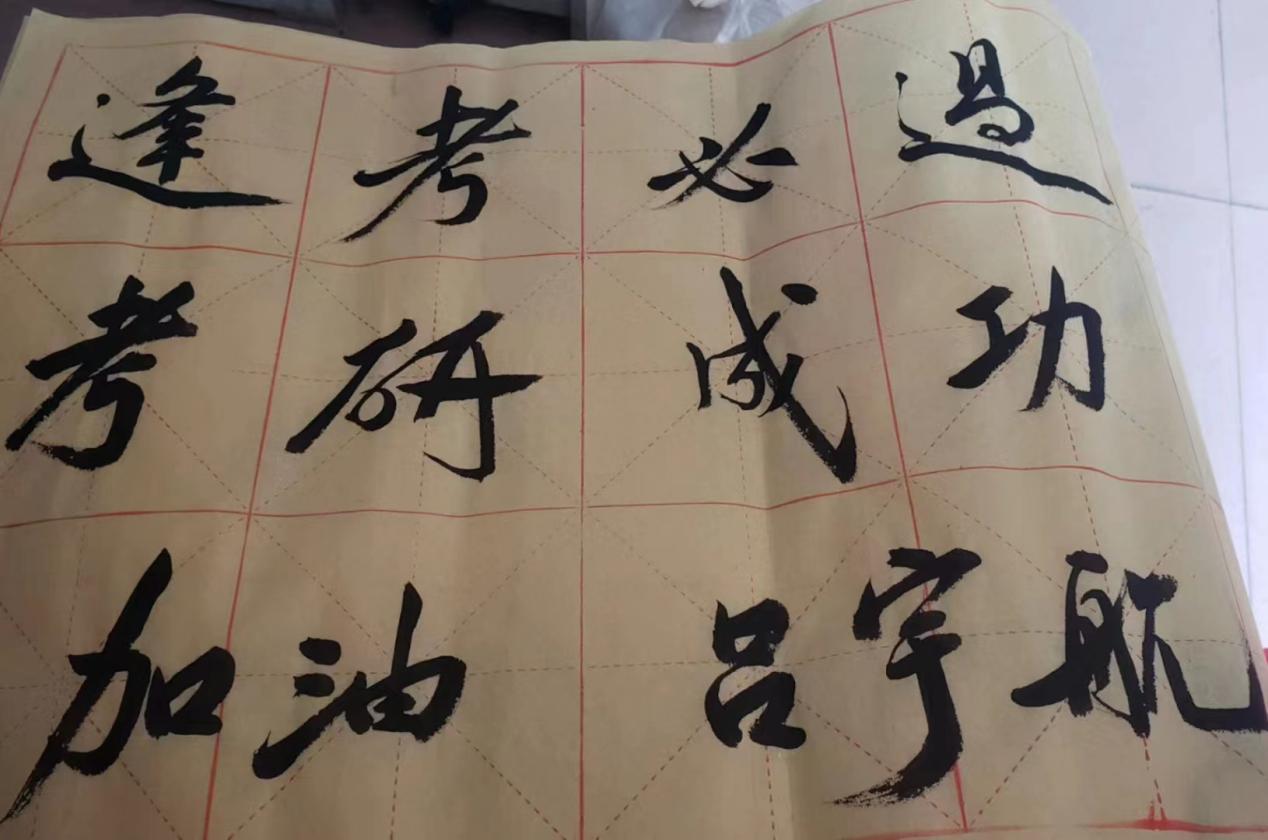 逢考必過
考研成功
加油 吕宇航